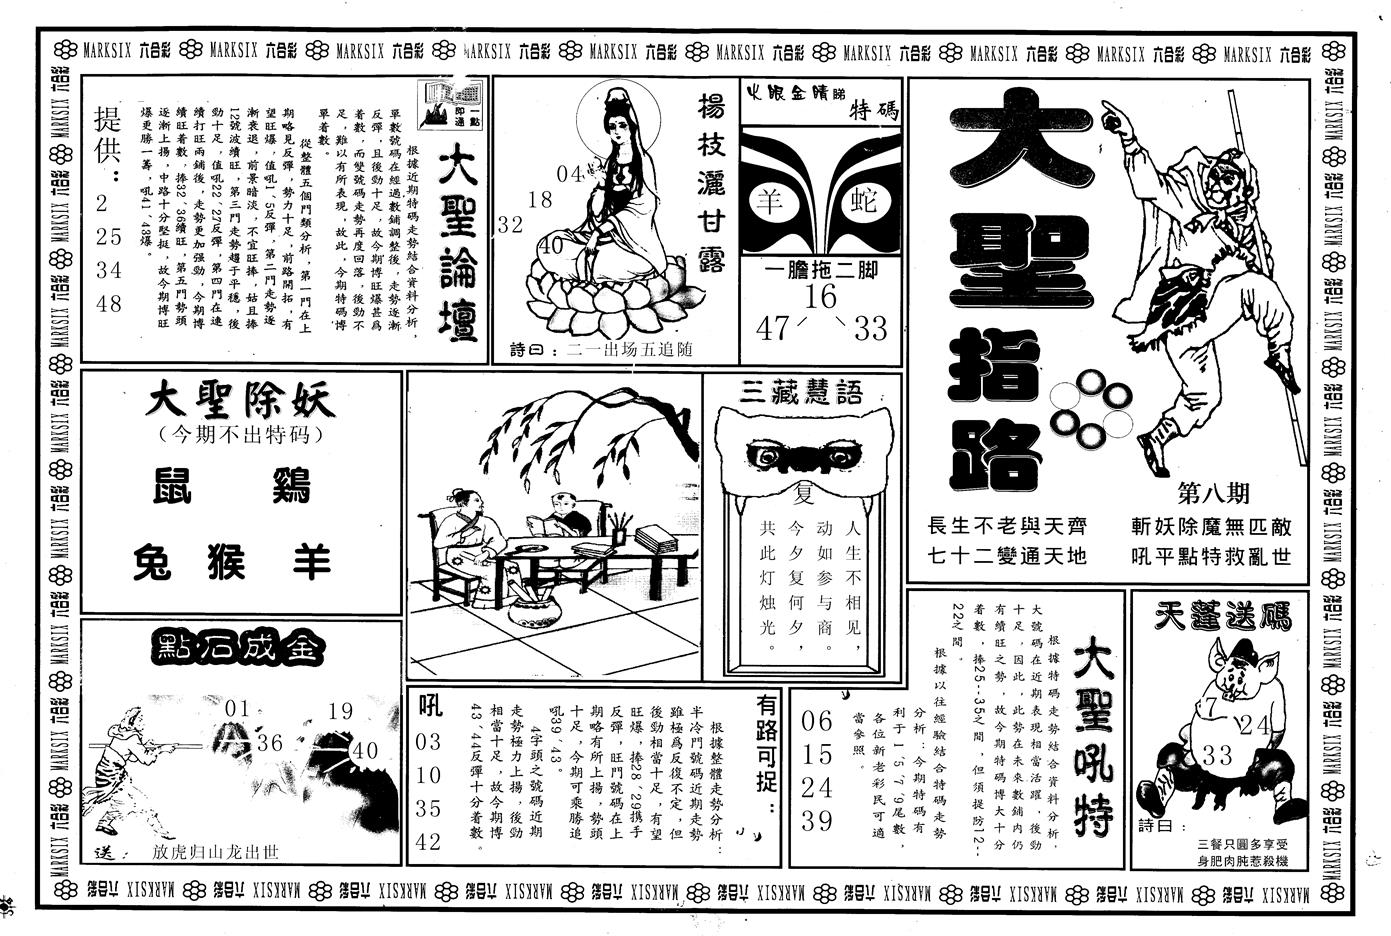 MARKSIX 六合彩 MARKSIX 六合彩 MARKSIX 六合彩 MARKSIX 六合彩 MARKSIX 六合彩 MARKSIX 六合彩 MARKSIX 六合彩 MARKSIX 六合彩 MARKSIX 六合彩 MARKSIX 六合彩
大聖指路
第八期
長生不老與天齊
七十二變通天地
斬妖除魔無匹敵
吼平點特救亂世
火眼金睛睇
特碼
羊
蛇
一膽拖二脚
16
47
33
楊枝灑甘露
04
18
32
40
詩曰：二一出场五追随
一點即通
大聖論壇
根據近期特碼走勢結合資料分析，
單數號碼在經過數鋪調整後，走勢逐漸
反彈，且後勁十足，故今期博旺爆甚爲
着數，而雙號碼走勢再度回落，後勁不
足，難以有所表現，故此，今期特碼博
單着數。
從整體五個門類分析，第一門在上
期略見反彈，勢力十足，前路開拓，有
望旺爆，值吼1、5反彈，第二門走勢逐
漸衰退，前景暗淡，不宜旺捧，姑且捧
12號波續旺，第三門走勢趨于平穩，後
勁十足，值吼22、27反彈，第四門在連
續打旺兩鋪後，走勢更加强勁，今期博
續旺着數，捧32、36續旺，第五門勢頭
逐漸上揚，中路十分堅挺，故今期博旺
爆更勝一籌，吼41、43爆。
提供：
2
25
34
48
大聖除妖
（今期不出特码）
鼠 鷄
兔 猴 羊
三藏慧語
复
人生不相见，
动如参与商。
今夕复何夕，
共此灯烛光。
點石成金
01
19
36
40
送：
放虎归山龙出世
有路可捉：
根據整體走勢分析：
半冷門號碼近期走勢
雖極爲反復不定，但
後勁相當十足，有望
旺爆，捧28、29携手
反彈，旺門號碼在上
期略有所上揚，勢頭
十足，今期可乘勝追
吼39、43。
4字頭之號碼近期
走勢極力上揚，後勁
相當十足，故今期博
43、44反彈十分着數。
吼
03
10
35
42
大聖吼特
根據特碼走勢結合資料分析，
大號碼在近期表現相當活躍，後勁
十足，因此，此勢在未來數鋪内仍
有續旺之勢，故今期特碼博大十分
着數，捧25--35之間，但須提防12--
22之間。
根據以往經驗結合特碼走勢
分析：今期特碼有
利于1、5、7、9尾數，
各位新老彩民可適
當參照。
06
15
24
39
天蓬送碼
7
24
33
詩曰：
三餐只圓多享受
身肥肉肫惹殺機